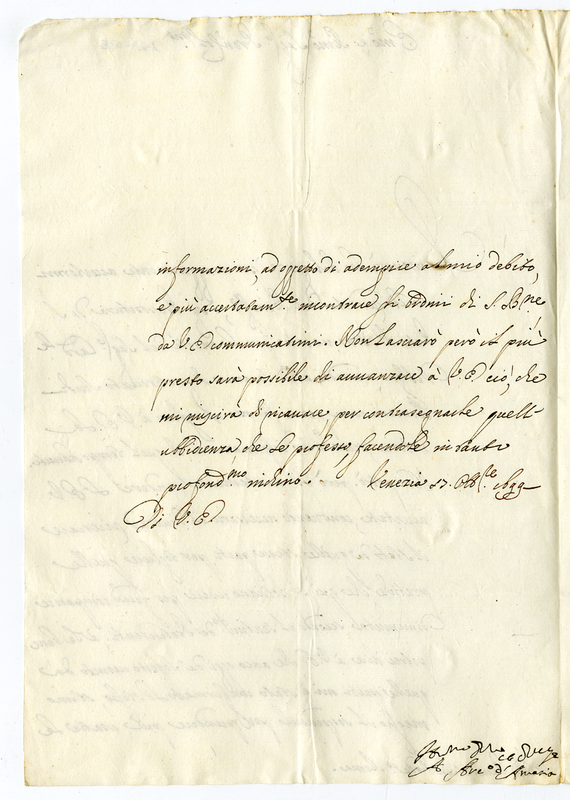 informazioni, ad oggetto di adempire al mio debito,
e più accertatam.te incontrare gli ordini di S. B.ne,
da V. E. communicatimi. Non lasciarò però il più
presto sarà possibile di avvanzare à V. E. ciò, che
mi riuscirà di ricavare per contrasegnarle quell'
ubbidienza, che le professo, facendole intanto
profond.mo inchino. Venezia 17. Ott.re 1699
Di V. E.
A. Arc.o d'Amasia